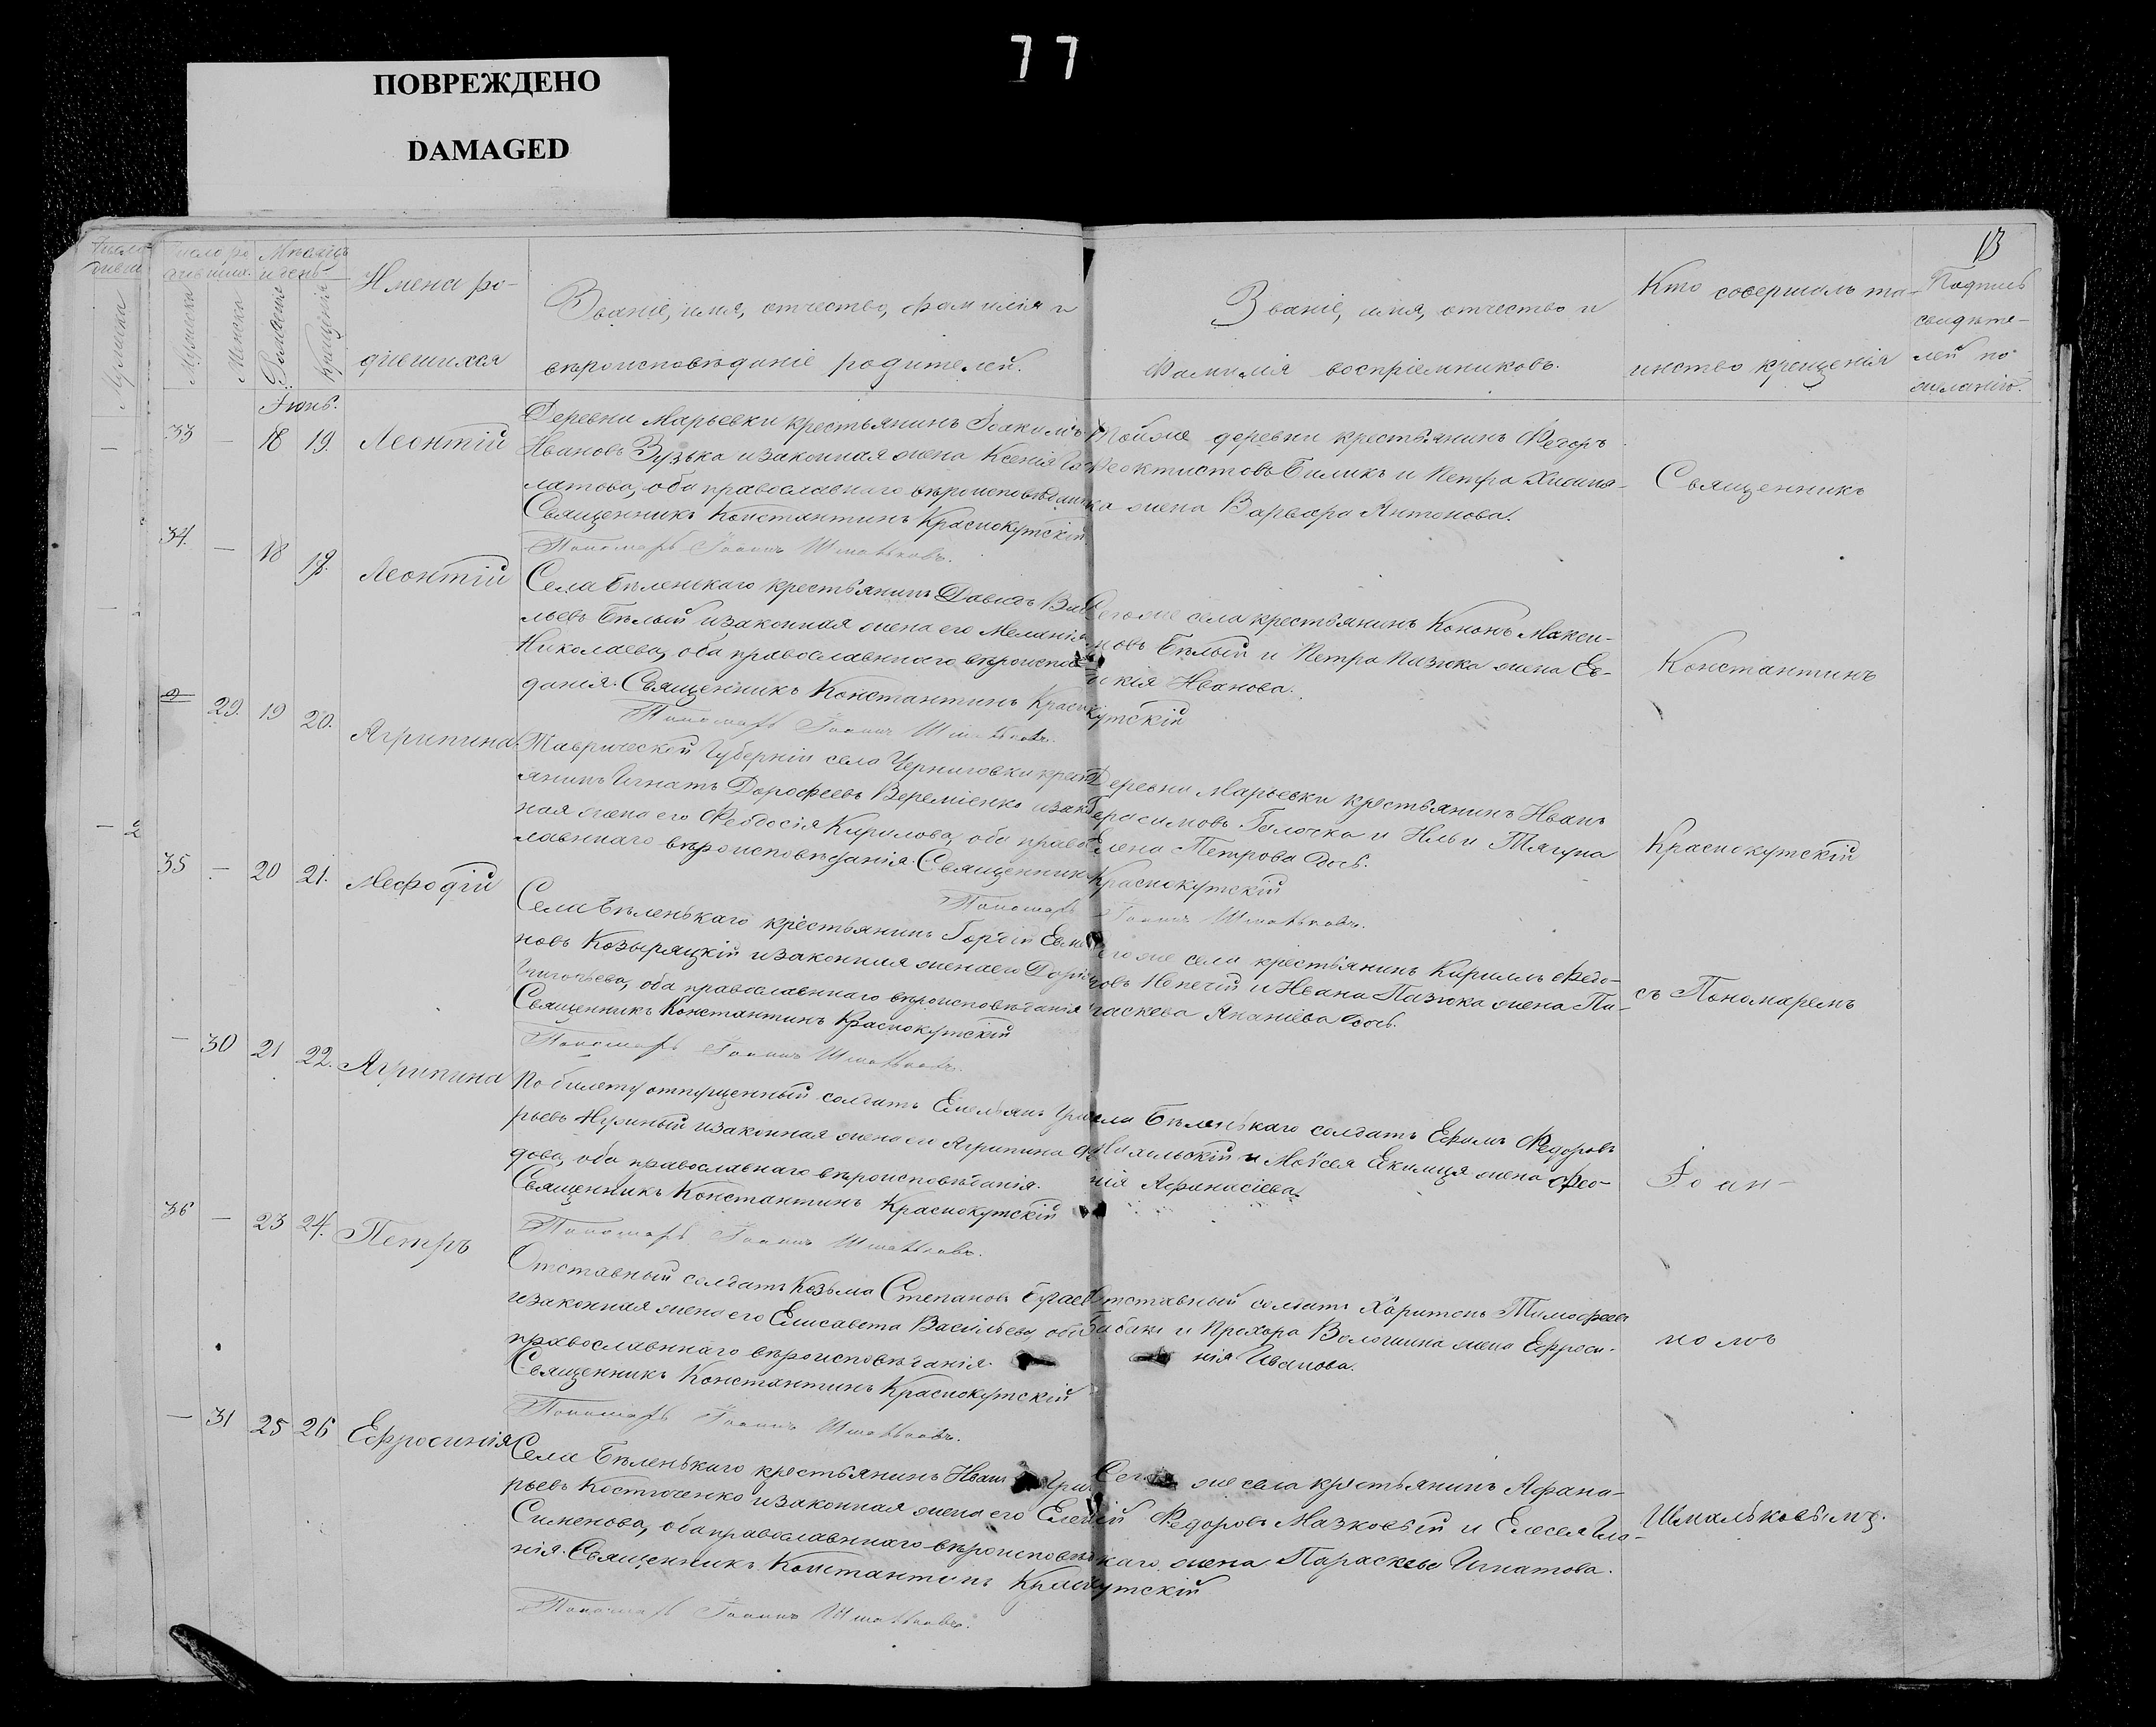 77
ПОВРЕЖДЕНО
DAMAGED
13
Число ро
дивших.
Мѣсяцъ
и день.
Мужска
Женска
Рожденіе
Крещенія
Имена ро-
дившихся
Званіе, имя, отчество, фамилія и
вѣроисповѣданіе родителей.
Званіе, имя, отчество и
фамилія воспріемниковъ.
Кто совершалъ та-
инство крещенія
Подпись
свидѣте-
лей по
желанію.
Іюнь.
33 — 18 19. Леонтій
Деревни Марьевки крестьянинъ Іоакимъ
Ивановъ Зузька и законная жена Ксенія
латова, оба православнаго вѣроисповѣдан
Священникъ Константинъ Краснокутскій
Пономарь Іоаннъ Шмальковъ.
Тойже деревни крестьянинъ Федоръ
Феоктистовъ Биликъ и Петра
ка жена Варвара Антонова.
34. — 18 19. Леонтій
Села Бѣленькаго крестьянинъ Давидъ
льевъ Бѣлый и законная жена его Меланія
Николаева, оба православнаго вѣроиспов
данія. Священникъ Константинъ Краснокутскій
Пономарь Іоаннъ Шмальковъ.
Сегоже села крестьянинъ Кононъ Макси-
мовъ Бѣлый и Петра Пазюка жена Ев-
докія Иванова.
29. 19 20. Агрипина
Таврической Губерніи села Черниговки крест
янинъ Игнатъ Дорофеевъ Веремiенко и закон
ная жена его Феодосія Кирилова, оба право
славнаго вѣроисповѣданія. Священникъ Краснокутскій
Пономарь Іоаннъ Шмальковъ.
Деревни Марьевки крестьянинъ Иванъ
Герасимовъ Галочка и Ильи Тягуна
Елена Петрова дочь.
35 — 20 21. Мефодій
Села Бѣленькаго крестьянинъ
новъ Козыряцкій и законная жена его Дарія
Григорьева, оба православнаго вѣроисповѣданія
Священникъ Константинъ Краснокутскій
Пономарь Іоаннъ Шмальковъ.
Сегоже села крестьянинъ Кирилъ Федо-
ровъ и Ивана Пазюка жена Па-
раскева Ананіева дочь.
— 30 21 22. Агрипина
По билету отпущенный солдатъ Емельянъ Григо
рьевъ Нужный и законная жена его Агрипина
дова, оба православнаго вѣроисповѣданія.
Священникъ Константинъ Краснокутскій
Пономарь Іоаннъ Шмальковъ.
Села Бѣленькаго солдатъ Ефимъ Федоровъ
и Моѵсея жена Фео-
нія Афанасіева.
36 — 23 24. Петръ
Отставный солдатъ Козьма Степановъ Бугаевъ
и законная жена его Елисавета Васильева, оба
православнаго вѣроисповѣданія.
Священникъ Константинъ Краснокутскій
Пономарь Іоаннъ Шмальковъ.
Отставный солдатъ Харитонъ Тимофеевъ
Бабакъ и Прохора Волошина жена Ефроси-
нія Иванова.
— 31 25 26 Ефросинія
Села Бѣленькаго крестьянинъ Иванъ Григо
рьевъ Костюченко и законная жена его Елена
Сименова, оба православнаго вѣроисповѣда
нія. Священникъ Константинъ Краснокутскій
Пономарь Іоаннъ Шмальковъ.
Сегоже села крестьянинъ Афана-
сій Федоровъ Мазковый и Елисея
каго жена Параскева Игнатова.
Священникъ
Константинъ
Краснокутскій
съ Пономаремъ
Іоан-
номъ
Шмальковымъ.